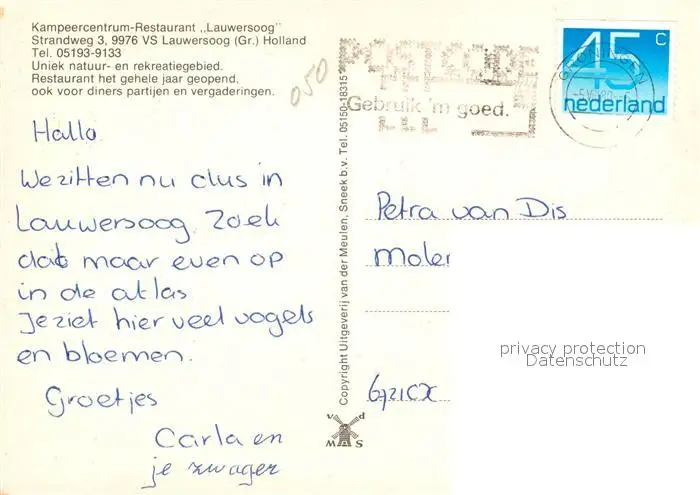 Kampeercentrum-Restaurant „Lauwersoog"
Strandweg 3, 9976 VS Lauwersoog (Gr.) Holland
Tel. 05193-9133
Uniek natuur- en rekreatiegebied.
Restaurant het gehele jaar geopend,
ook voor diners partijen en vergaderingen.
050
Hallo
We zitten nu dus in
Lauwersoog. Zoek
dat maar even op
in de atlas
Je ziet hier veel vogels
en bloemen.
Groetjes
Carla en
je zwager
Copyright Uitgeverij van der Meulen, Sneek b.v. Tel. 05150-18315
v d
M S
POSTCODE
Gebruik 'm goed.
GRONINGEN
45 c
nederland
Petra van Dis
Moler
6721CX
privacy protection
Datenschutz